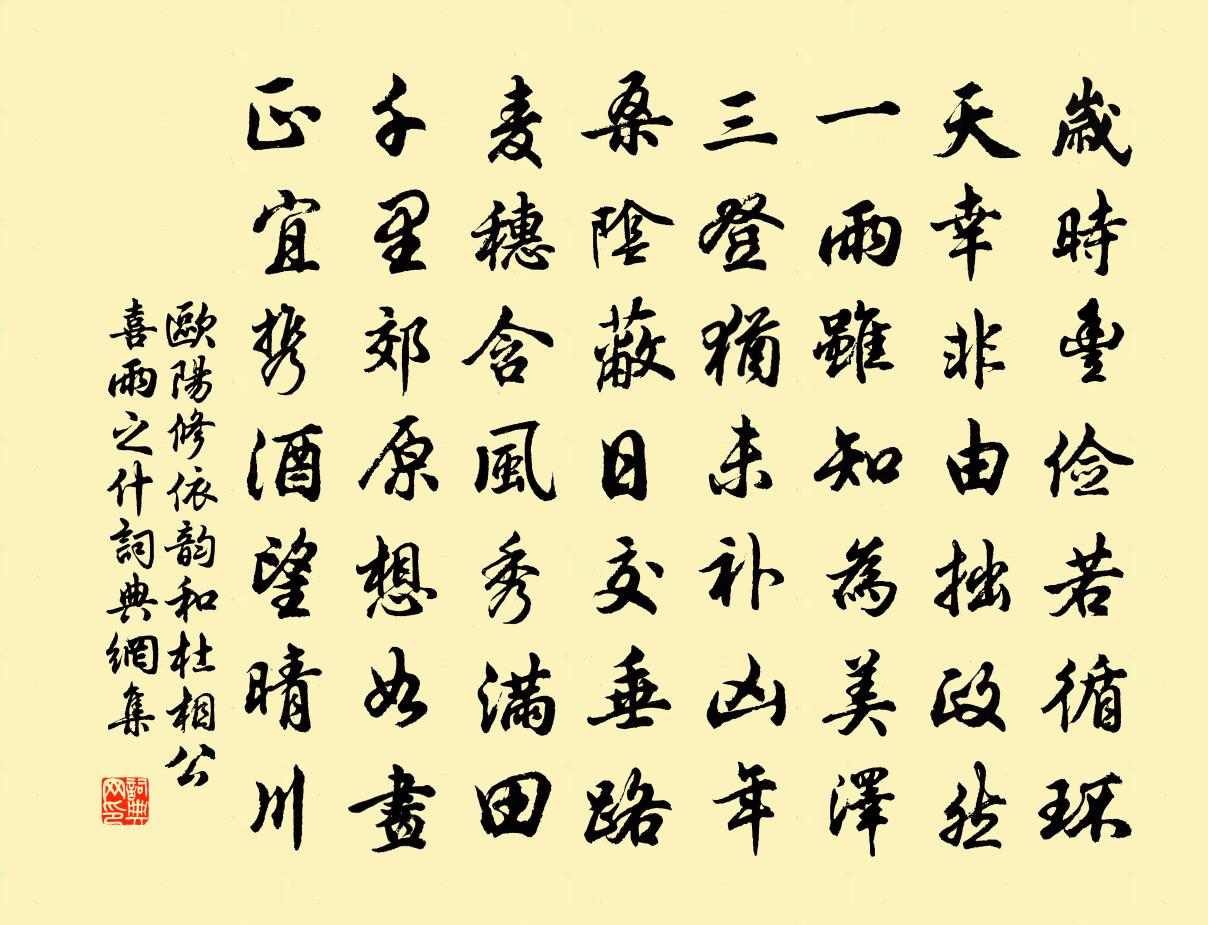 歲時豊儉若循環
天幸非由拙政然
一雨雖知為美澤
三登猶未补凶年
桑陰蔽日交垂路
麦穗含風秀滿田
千里郊原想如畫
正宜携酒望晴川
歐陽修依韵和杜相公
喜雨之什詞典網集
詞典
网印